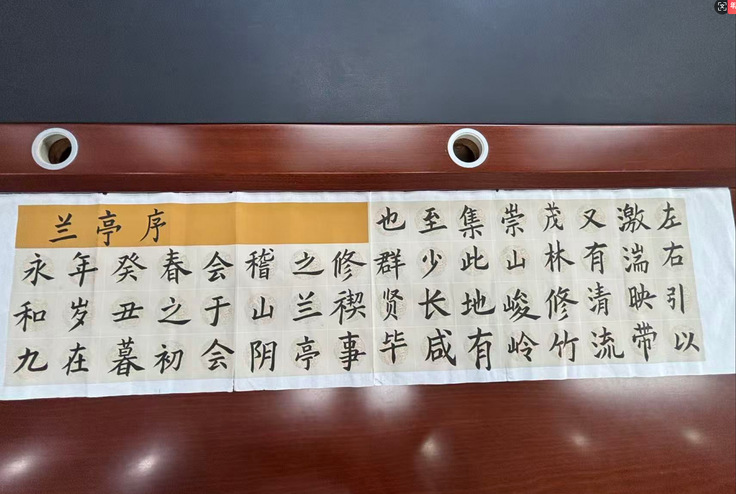 兰亭序
永和九
年岁在
癸丑暮
春之初
会于会
稽山阴
之兰亭
修禊事
也群贤毕
至少长咸
集此地有
崇山峻岭
茂林修竹
又有清流
激湍映带
左右引以